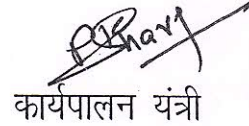 कार्यपालन यंत्री